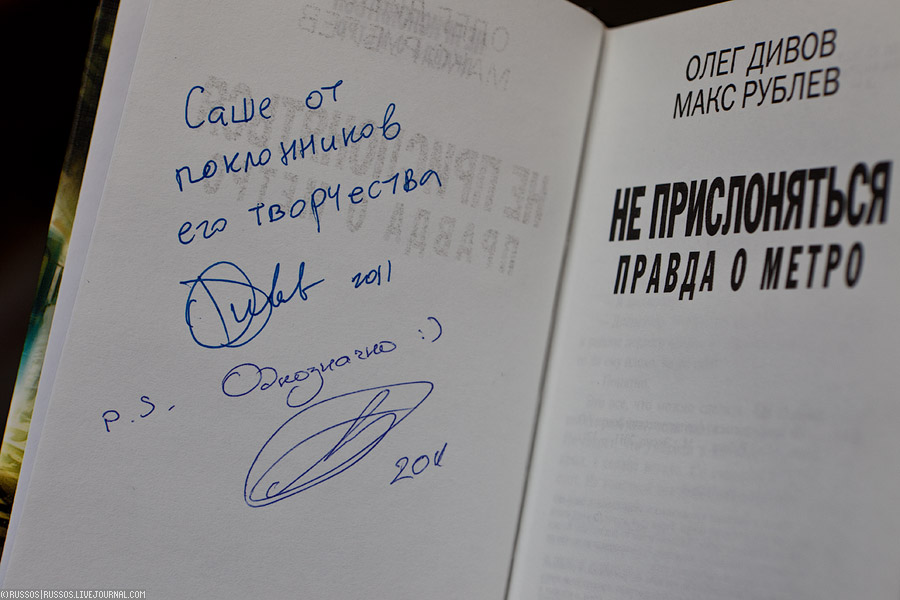 Саше от
поклонников
его творчества
Дивов 2011
p.s. Однозначно :)
2011
ОЛЕГ ДИВОВ
МАКС РУБЛЕВ
НЕ ПРИСЛОНЯТЬСЯ
ПРАВДА О МЕТРО
(C)RUSSOS|RUSSOS.LIVEJOURNAL.COM